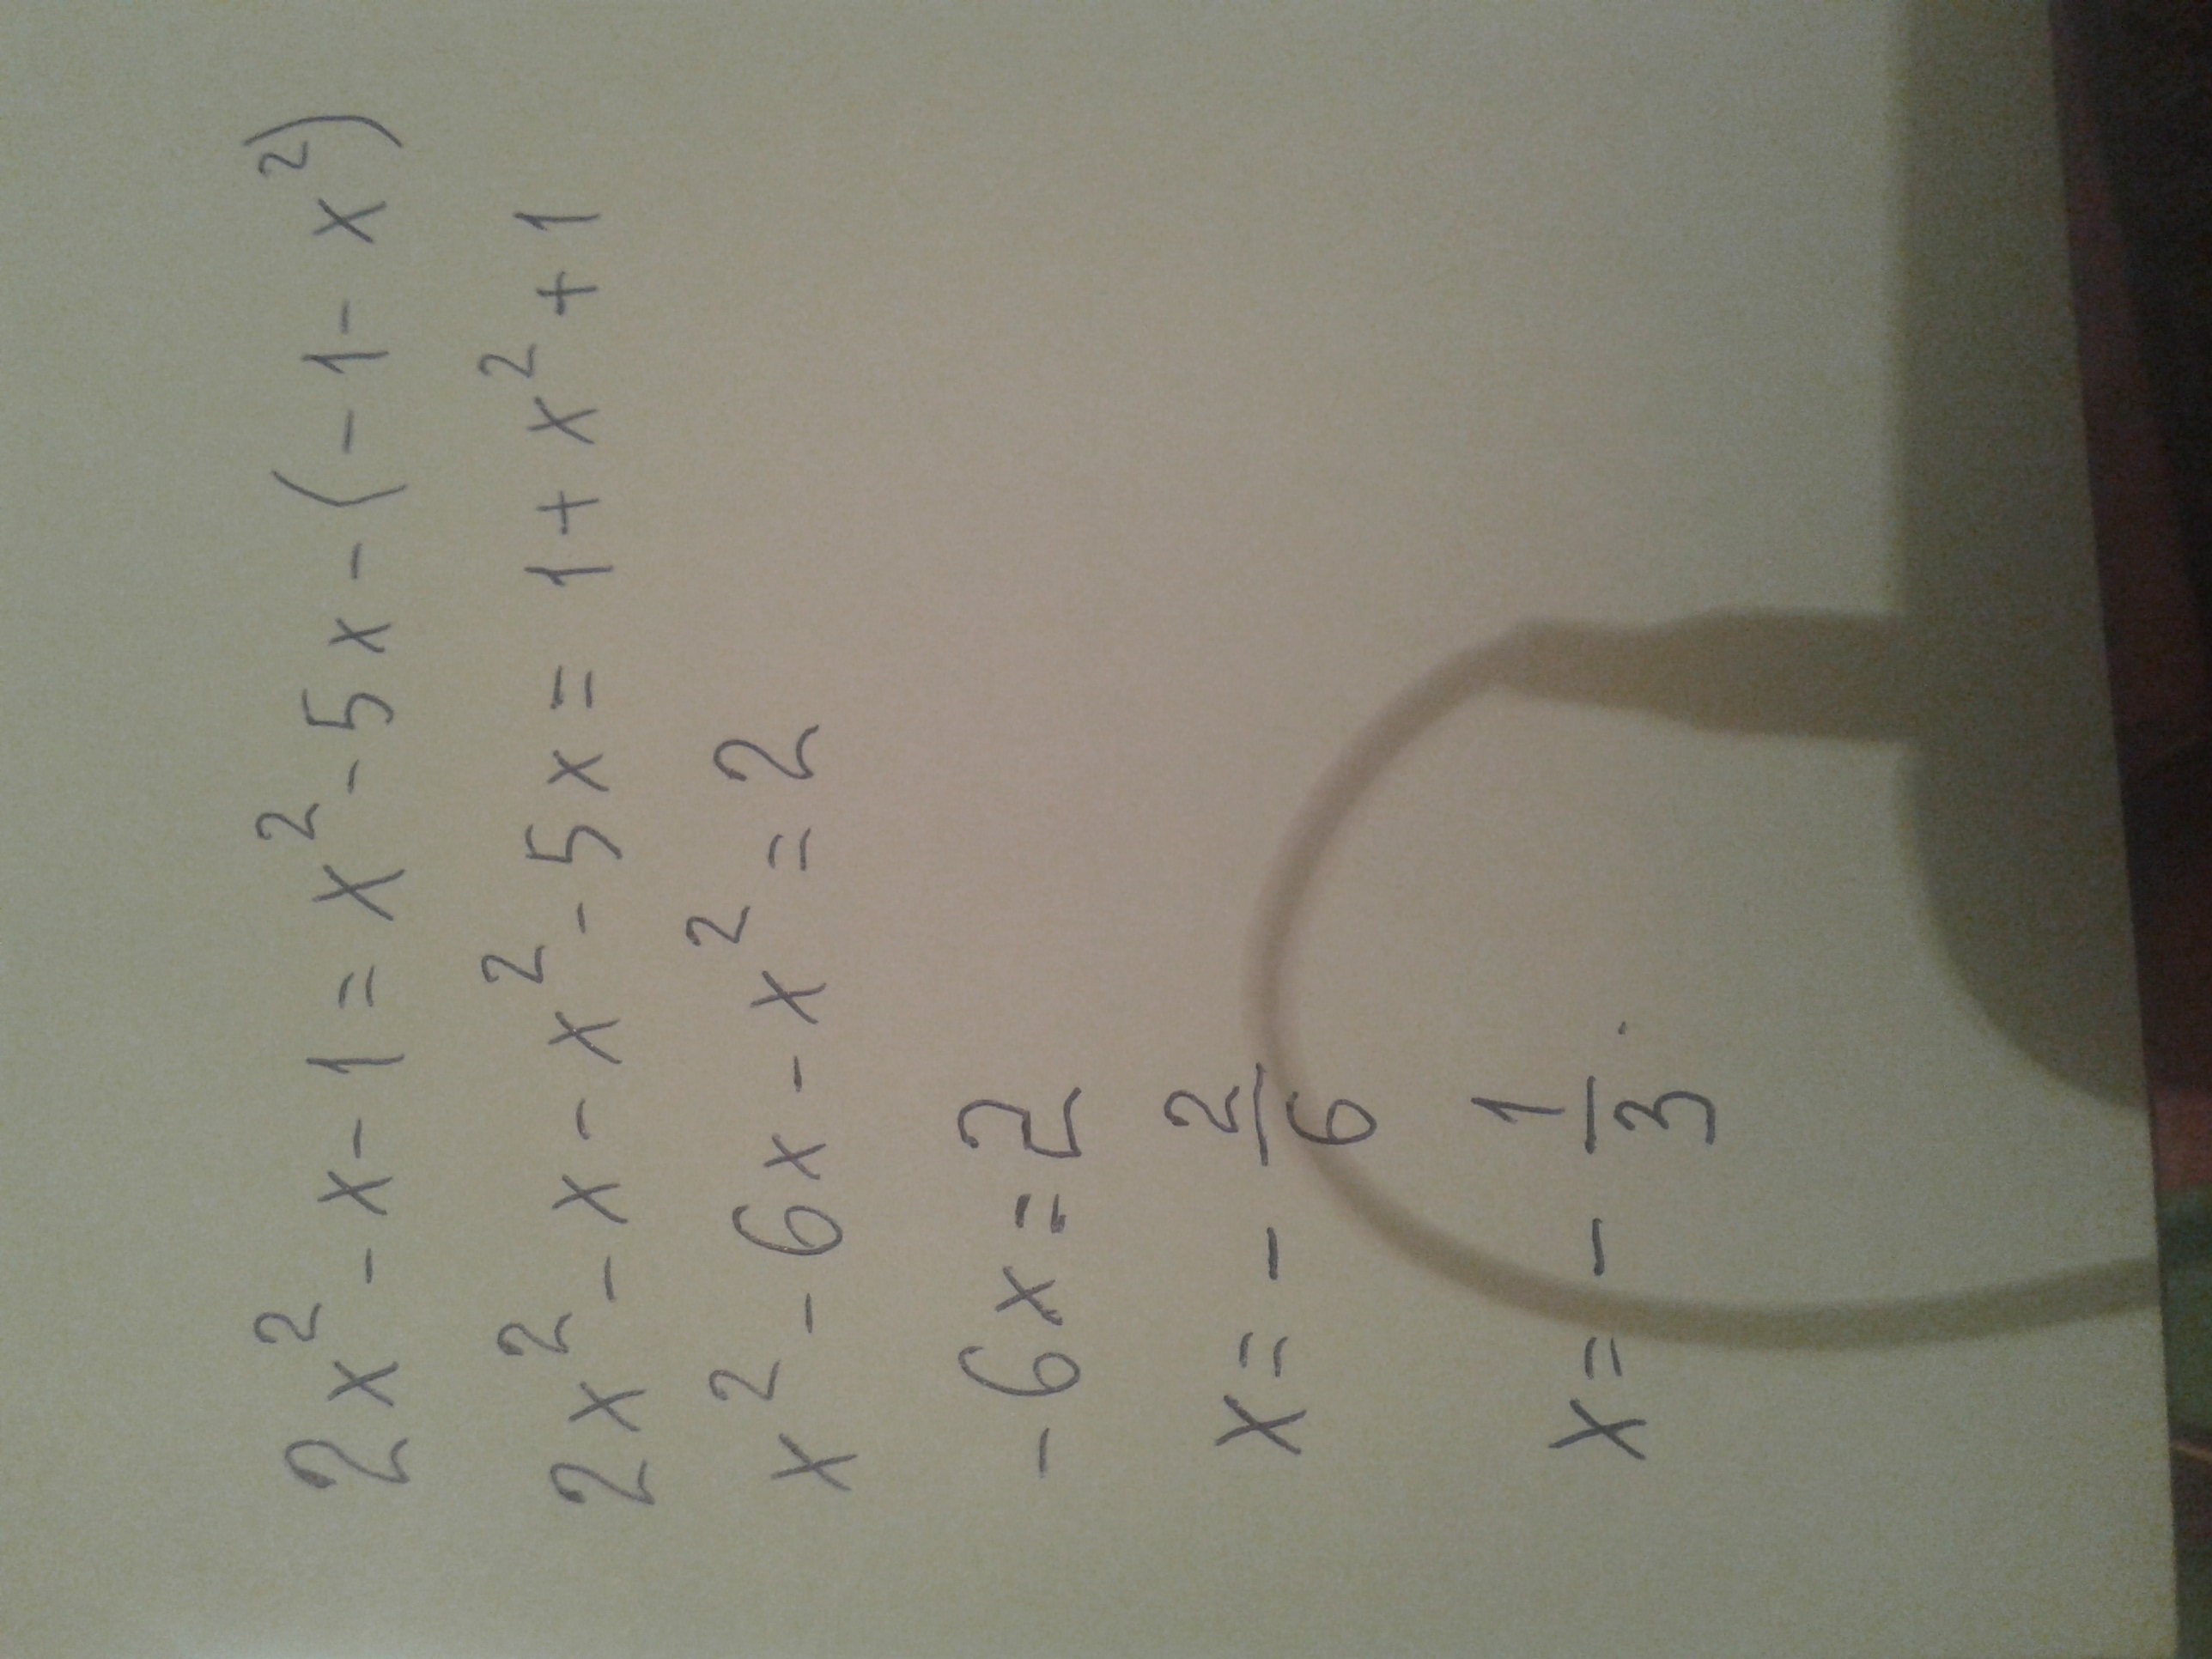 2x² - x - 1 = x² - 5x - (-1 - x²)
2x² - x - x² - 5x = 1 + x² + 1
x² - 6x - x² = 2
-6x = 2
x = - 2/6
x = - 1/3.